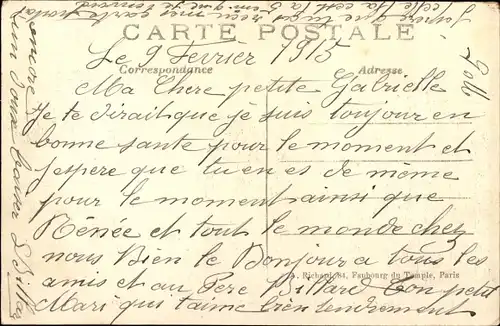 CARTE POSTALE
Le 9 Fevrier 1915
Correspondance Adresse
Ma Chere petite Gabrielle
Je te dirait que je suis toujour en
bonne sante pour le moment et
jespere que tu en es de même
pour le moment ainsi que
Rénée et tout le monde chez
nous Bien le Bonjour a tous les
A. Richard, 84, Faubourg du Temple, Paris
amis et au Pere Billard Ton petit
Mari qui taime bien tendrement
Jespere que
un doux baiser